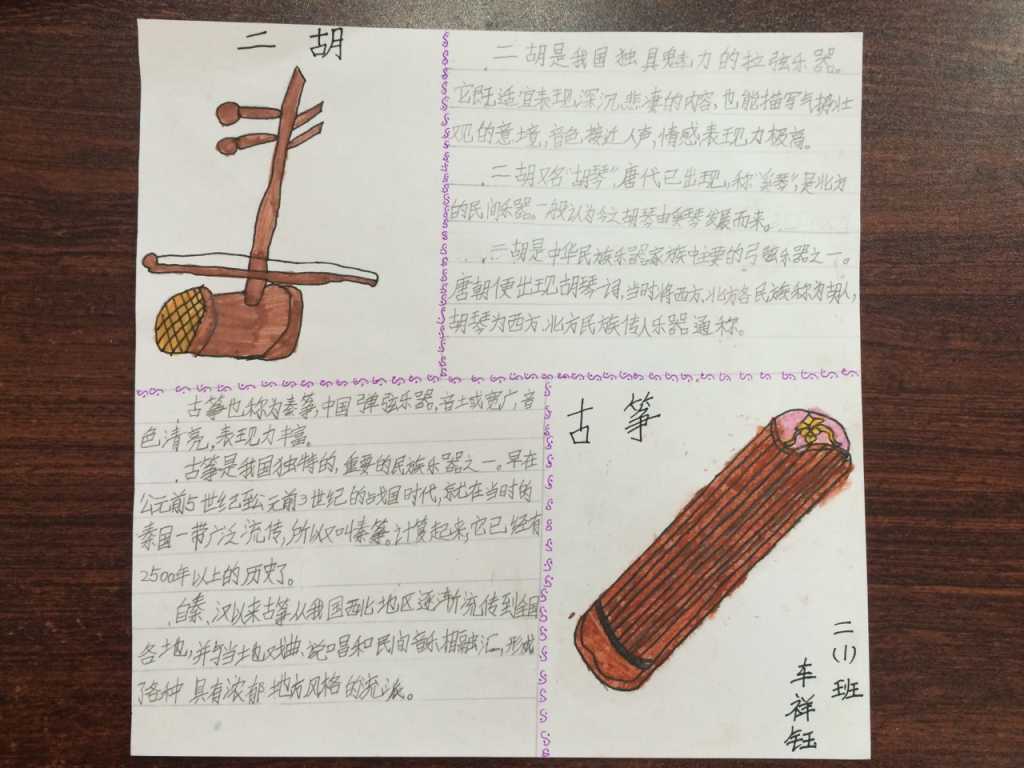 二 胡
二胡是我国独具魅力的拉弦乐器。
它既适宜表现深沉、悲凄的内容,也能描写气势壮
观的意境,音色接近人声,情感表现力极高。
二胡又名“胡琴”,唐代已出现,称“奚琴”,是北方
的民间乐器。一般认为今之胡琴由奚琴发展而来。
二胡是中华民族乐器家族中主要的弓弦乐器之一。
唐朝便出现胡琴一词,当时将西方、北方各民族称为胡人,
胡琴为西方、北方民族传入乐器通称。
古筝也称为秦筝,中国弹弦乐器,音域宽广,音
色清亮,表现力丰富。
古筝是我国独特的,重要的民族乐器之一。早在
公元前5世纪至公元前3世纪的战国时代,就在当时的
秦国一带广泛流传,所以又叫秦筝。计算起来,它已经有
2500年以上的历史了。
自秦、汉以来古筝从我国西北地区逐渐流传到全国
各地,并与当地戏曲、说唱和民间音乐相融汇,形成
了各种具有浓郁地方风格的流派。
古 筝
二(1)班
车祥钰